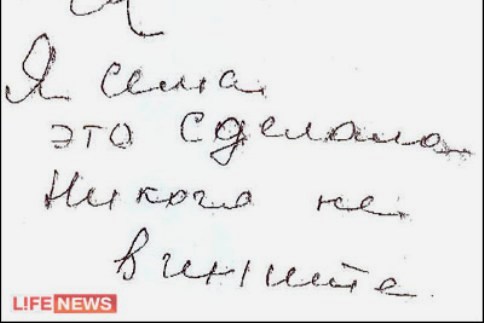 Я сама
это сделала.
Никого не
вините.
L!FENEWS